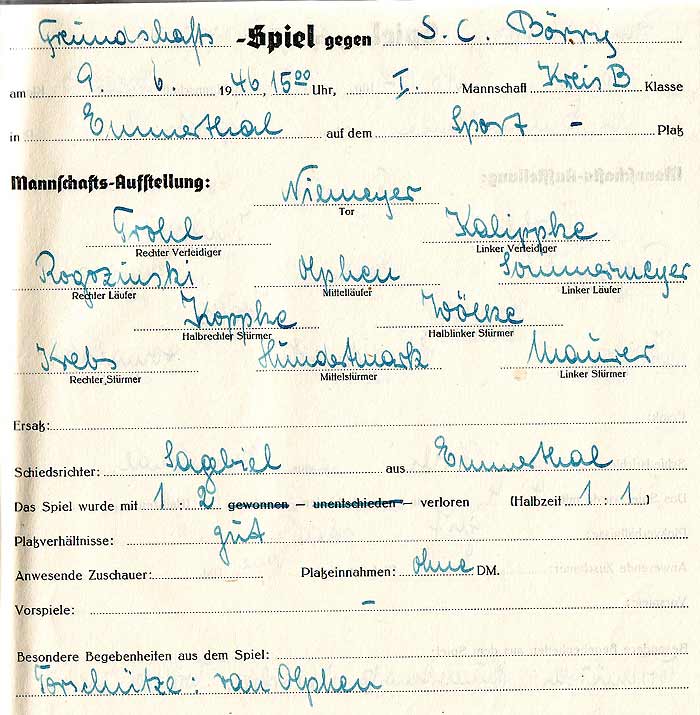 Freundschafts -Spiel gegen S. C. Börry
am 9. 6. 1946, 15⁰⁰ Uhr, I. Mannschaft Kreis B Klasse
in Emmerthal auf dem Sport - Platz
Mannschafts-Aufstellung:
Niemeyer
Tor
Trohl Kalippke
Rechter Verteidiger Linker Verteidiger
Rogozinski Olphen Sommermeyer
Rechter Läufer Mittelläufer Linker Läufer
Koppke Wölke
Halbrechter Stürmer Halblinker Stürmer
Krebs Hundertmark Maurer
Rechter Stürmer Mittelstürmer Linker Stürmer
Ersatz:
Schiedsrichter: Sagebiel aus Emmerthal
Das Spiel wurde mit 1 : 2 gewonnen – unentschieden – verloren (Halbzeit 1 : 1)
Platzverhältnisse: gut
Anwesende Zuschauer: Platzeinnahmen: ohne DM.
Vorspiele: –
Besondere Begebenheiten aus dem Spiel:
Torschütze: van Olphen